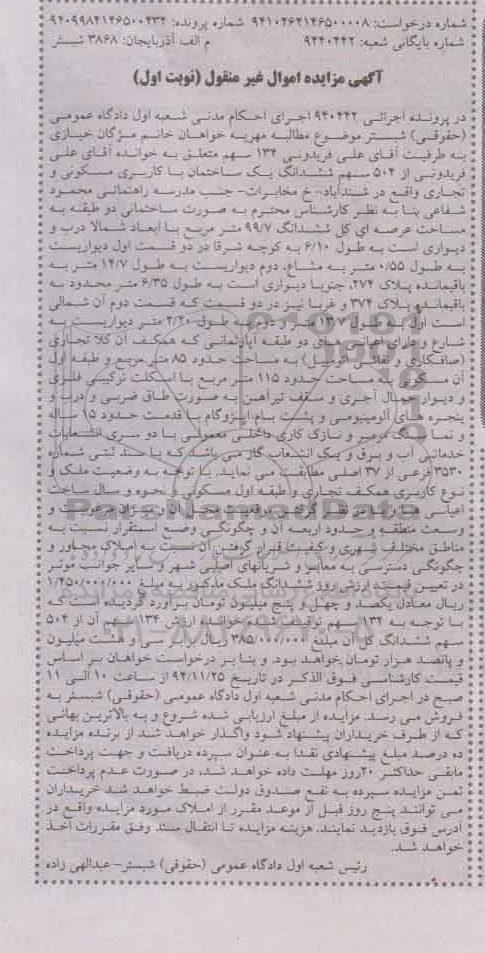 شماره درخواست: ۹۴۱۰۴۶۴۱۴۶۵۰۰۰۰۸ شماره پرونده: ۹۴۰۹۹۸۴۱۴۶۵۰۰۴۳۴
شماره بایگانی شعبه: ۹۴۴۰۴۴۲ م الف آذربایجان: ۳۸۶۸ شبستر
آگهی مزایده اموال غیر منقول (نوبت اول)
در پرونده اجرائی ۹۴۰۴۴۲ اجرای احکام مدنی شعبه اول دادگاه عمومی
(حقوقی) شبستر موضوع مطالبه مهریه خواهان خانم مژگان خبازی
به طرفیت آقای علی فریدونی ۱۳۴ سهم متعلق به خوانده آقای علی
فریدونی از ۵۰۴ سهم ششدانگ یک ساختمان با کاربری مسکونی و
تجاری واقع در شندآباد- خ مخابرات- جنب مدرسه راهنمائی محمود
شفاعی بنا به نظر کارشناس محترم به صورت ساختمانی دو طبقه به
مساحت عرصه ای کل ششدانگ ۹۹/۷ متر مربع با ابعاد شمالا درب و
دیواری است به طول ۶/۱۰ به کوچه شرقا در دو قسمت اول دیواریست
به طول ۰/۵۵ متر به مشاع، دوم دیواریست به طول ۱۴/۷ متر به
باقیمانده پلاک ۲۷۴، جنوبا دیواری است به طول ۶/۳۵ متر محدود به
باقیمانده پلاک ۳۷۴ و غربا نیز در دو قسمت که قسمت دوم آن شمالی
است اول به طول ۱۳/۷ متر و دوم به طول ۲/۲۰ متر دیواریست به
شارع و دارای اعیانی های دو طبقه آپارتمانی که همکف آن کلا تجاری
(صافکاری و نقاشی اتومبیل) به مساحت حدود ۸۵ متر مربع و طبقه اول
آن مسکونی به مساحت حدود ۱۱۵ متر مربع با اسکلت ترکیبی فلزی
و دیوار حمال آجری و سقف تیرآهن به صورت طاق ضربی و درب و
پنجره های آلومینیومی و پشت بام ایزوگام با قدمت حدود ۱۵ ساله
و نما سنگ مرمر و نازک کاری داخلی معمولی با دو سری انشعابات
خدماتی آب و برق و یک انشعاب گاز می باشد که با سند ثبتی شماره
۳۵۳۰ فرعی از ۳۷ اصلی مطابقت می نماید. با توجه به وضعیت ملک و
نوع کاربری همکف تجاری و طبقه اول مسکونی و نحوه و سال ساخت
اعیانی در نظر گرفتن موقعیت محل آن و میزان مرغوبیت و
وسعت منطقه و حدود اربعه آن و چگونگی وضع استقرار نسبت به
مناطق مختلف شهری و کیفیت قرار گرفتن آن نسبت به املاک مجاور و
چگونگی دسترسی به معابر و شریانهای اصلی شهر و سایر جوانب موثر
در تعیین قیمت ارزش روز ششدانگ ملک مذکور به مبلغ ۱/۴۵۰/۰۰۰/۰۰۰
ریال معادل یکصد و چهل و پنج میلیون تومان برآورد گردیده است که
با توجه به ۱۳۴ سهم توقیف شده خوانده ارزش ۱۳۴ سهم آن از ۵۰۴
سهم ششدانگ کل آن مبلغ ۳۸۵/۰۰۰/۰۰۰ ریال برابر سی و هشت میلیون
و پانصد هزار تومان خواهد بود. و بنا بر درخواست خواهان بر اساس
قیمت کارشناسی فوق الذکر در تاریخ ۹۴/۱۱/۲۵ از ساعت ۱۰ الی ۱۱
صبح در اجرای احکام مدنی شعبه اول دادگاه عمومی (حقوقی) شبستر به
فروش می رسد. مزایده از مبلغ ارزیابی شده شروع و به بالاترین بهائی
که از طرف خریداران پیشنهاد شود واگذار خواهد شد از برنده مزایده
ده درصد مبلغ پیشنهادی نقدا به عنوان سپرده دریافت و جهت پرداخت
مابقی حداکثر ۲۰ روز مهلت داده خواهد شد، در صورت عدم پرداخت
ثمن مزایده سپرده به نفع صندوق دولت ضبط خواهد شد خریداران
می توانند پنج روز قبل از موعد مقرر از املاک مورد مزایده واقع در
آدرس فوق بازدید نمایند. هزینه مزایده تا انتقال سند وفق مقررات اخذ
خواهد شد.
رئیس شعبه اول دادگاه عمومی (حقوقی) شبستر- عبدالهی زاده
ParsNamadData